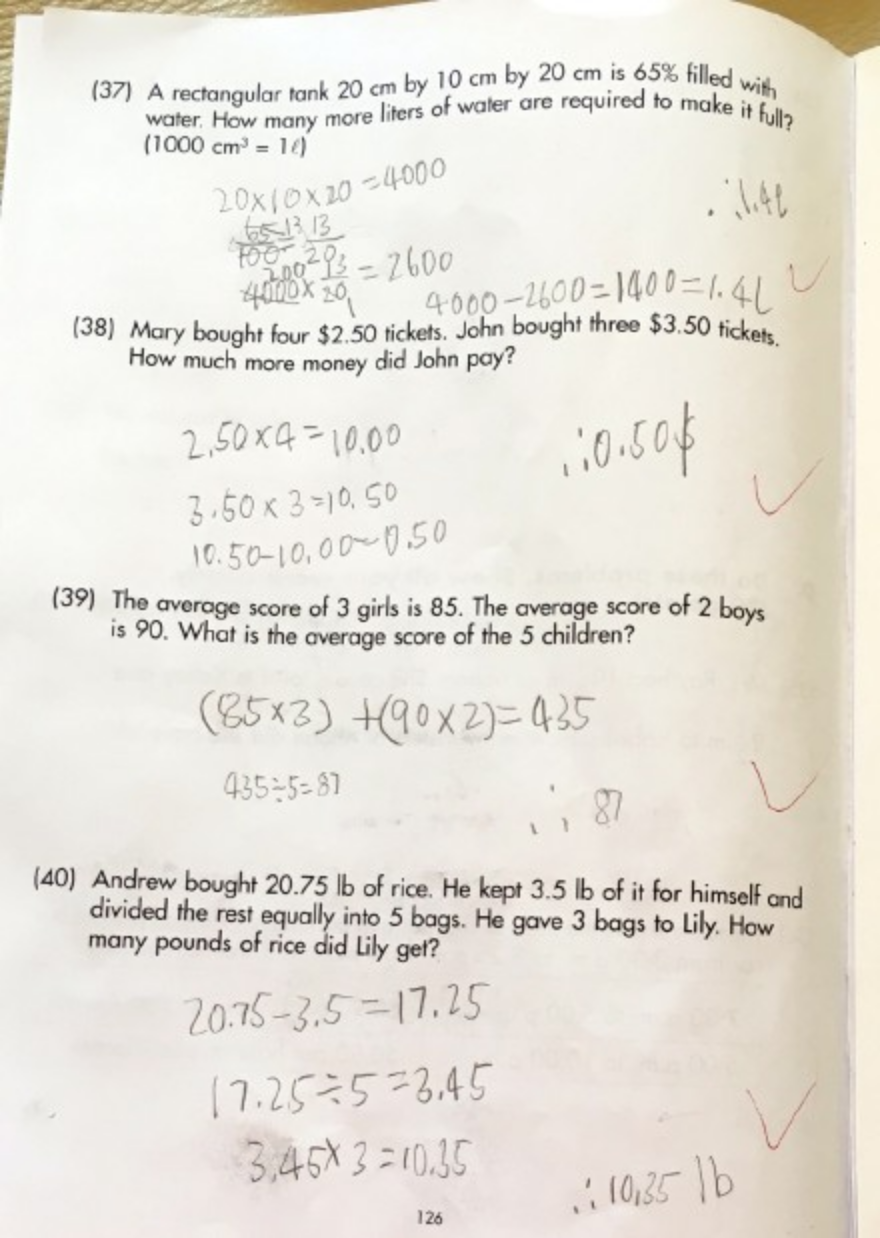 (37) A rectangular tank 20 cm by 10 cm by 20 cm is 65% filled with
water. How many more liters of water are required to make it full?
(1000 cm³ = 1ℓ)
20×10×20=4000
∴1.4ℓ
65/100 = 13/20 13/20
200
4000 × 13/20 = 2600
1
4000-2600=1400=1.4L
(38) Mary bought four $2.50 tickets. John bought three $3.50 tickets.
How much more money did John pay?
2.50×4=10.00
∴0.50$
3.50×3=10.50
10.50-10.00=0.50
(39) The average score of 3 girls is 85. The average score of 2 boys
is 90. What is the average score of the 5 children?
(85×3)+(90×2)=435
435÷5=87
∴ 87
(40) Andrew bought 20.75 lb of rice. He kept 3.5 lb of it for himself and
divided the rest equally into 5 bags. He gave 3 bags to Lily. How
many pounds of rice did Lily get?
20.75-3.5=17.25
17.25÷5=3.45
3.45×3=10.35
∴10.35 lb
126